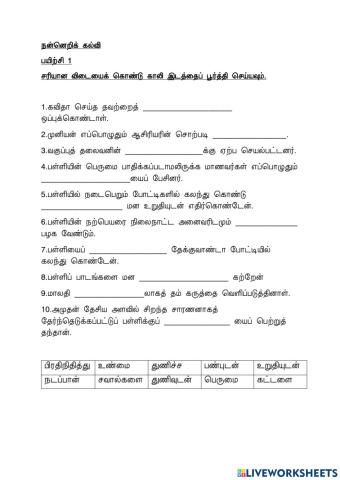 நன்னெறிக் கல்வி
பயிற்சி 1
சரியான விடையைக் கொண்டு காலி இடத்தைப் பூர்த்தி செய்யவும்.
1.கவிதா செய்த தவற்றைத் ____________________
ஒப்புக்கொண்டாள்.
2.முனியன் எப்பொழுதும் ஆசிரியரின் சொற்படி _________________.
3.வகுப்புத் தலைவனின் __________________க்கு ஏற்ப செயல்பட்டனர்.
4.பள்ளியின் பெருமை பாதிக்கப்படாமலிருக்க மாணவர்கள் எப்பொழுதும்
____________________யைப் பேசினர்.
5.பள்ளியில் நடைபெறும் போட்டிகளில் கலந்து கொண்டு
___________________ மன உறுதியுடன் எதிர்கொண்டேன்.
6.பள்ளியின் நற்பெயரை நிலைநாட்ட அனைவரிடமும் ______________
பழக வேண்டும்.
7.பள்ளியைப் __________________ தேக்குவாண்டா போட்டியில்
கலந்து கொண்டேன்.
8.பள்ளிப் பாடங்களை மன ____________________ கற்றேன்
9.மாலதி ________________லாகத் தம் கருத்தை வெளிப்படுத்தினாள்.
10.அமுதன் தேசிய அளவில் சிறந்த சாரணனாகத்
தேர்ந்தெடுக்கப்பட்டுப் பள்ளிக்குப் _______________ யைப் பெற்றுத்
தந்தான்.
பிரதிநிதித்து உண்மை துணிச்ச பண்புடன் உறுதியுடன்
நடப்பான் சவால்களை துணிவுடன் பெருமை கட்டளை
LIVEWORKSHEETS